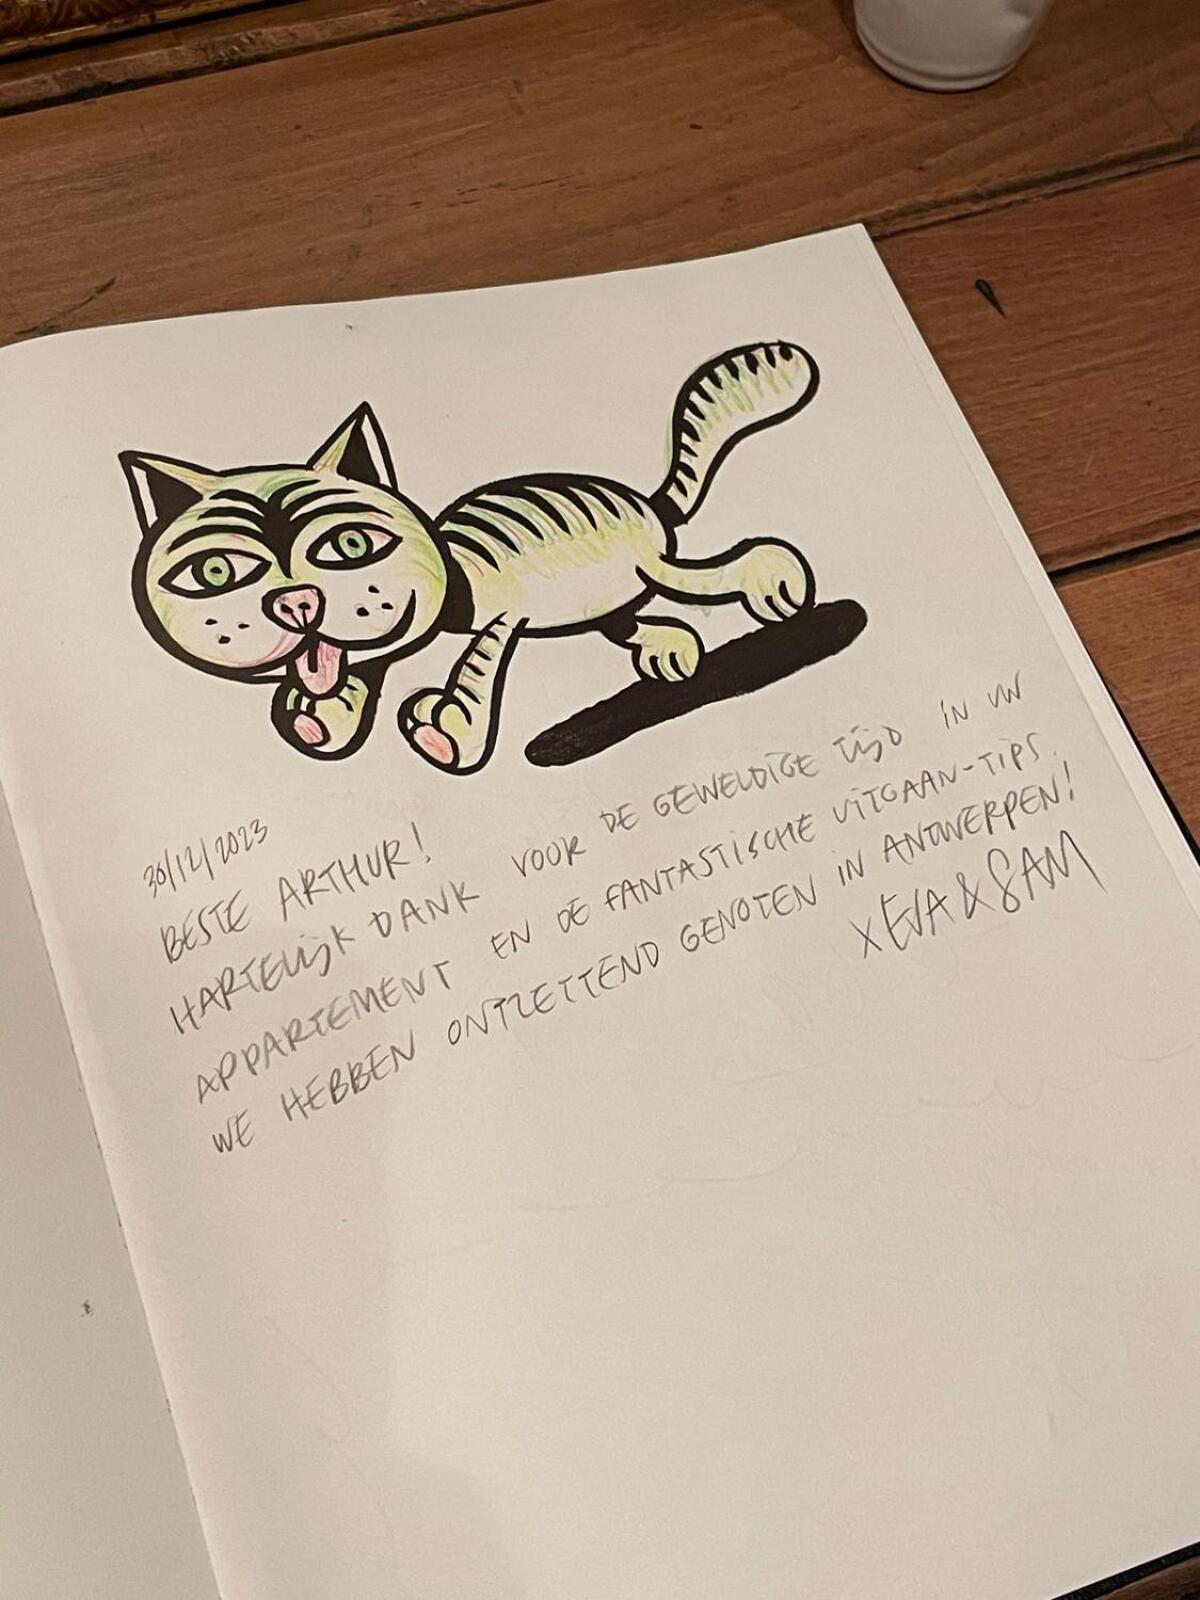 30/12/2023
BESTE ARTHUR!
HARTELIJK DANK VOOR DE GEWELDIGE TIJD IN UW
APPARTEMENT EN DE FANTASTISCHE UITGAAN-TIPS.
WE HEBBEN ONTZETTEND GENOTEN IN ANTWERPEN!
X EVA & SAM